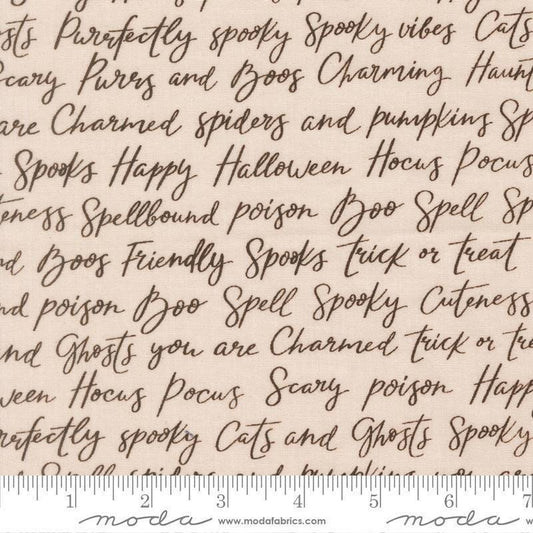 osts Purrfectly spooky Spooky vibes Cats
Scary Purrs and Boos Charming Haunt
are Charmed spiders and pumpkins Sp
Spooks Happy Halloween Hocus Pocus
teness Spellbound poison Boo Spell Sp
nd Boos Friendly Spooks trick or treat
nd poison Boo Spell Spooky Cuteness
and Ghosts you are Charmed trick or tre
ween Hocus Pocus Scary poison Happ
rrfectly spooky Cats and Ghosts Spooky
Spell spiders and pumpkins you are
1 2 3 4 5 6 7
moda www.modafabrics.com moda